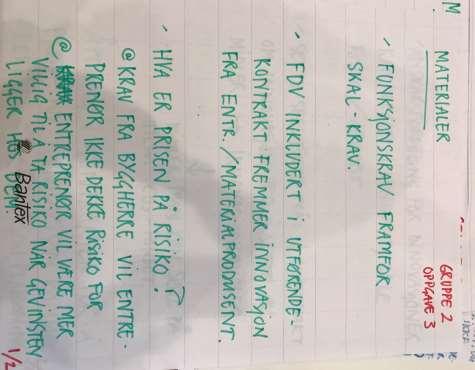 M. MATERIALER
GRUPPE 2
OPPGAVE 3
- FUNKSJONSKRAV FRAMFOR
SKAL-KRAV.
- FDV INKLUDERT I UTFØRENDE-
KONTRAKT FREMMER INNOVASJON
FRA ENTR./MATERIALPRODUSENT.
- HVA ER PRISEN PÅ RISIKO?
@ KRAV FRA BYGGHERRE VIL ENTRE-
PRENØR IKKE DEKKE RISIKO FOR
@ ENTREPRENØR VIL VÆRE MER
VILLIG TIL Å TA RISIKO NÅR GEVINSTEN
LIGGER HOS DEM
Bantex
1/2